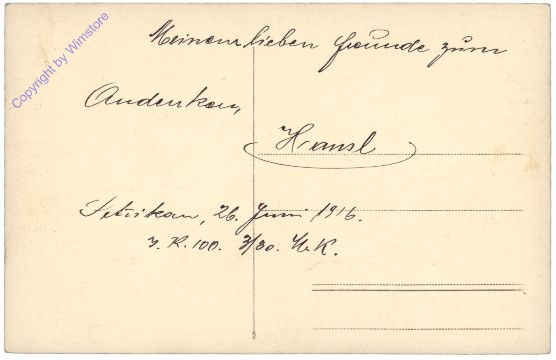 Meinem lieben Freunde zum
Andenken,
Hansl
26. Juni 1916.
J. R. 100. 3/30. M. K.
Copyright by Wimstore